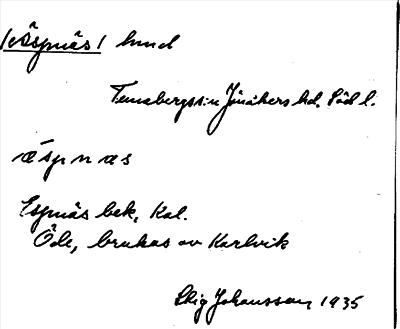 /Äspnäs/ hmd
Tunabergs sn Jönåkers hd. Söd l.
æ´spnæs
Espnäs bek. Kal.
Öde, brukas av Karlvik
Stig Johansson 1935